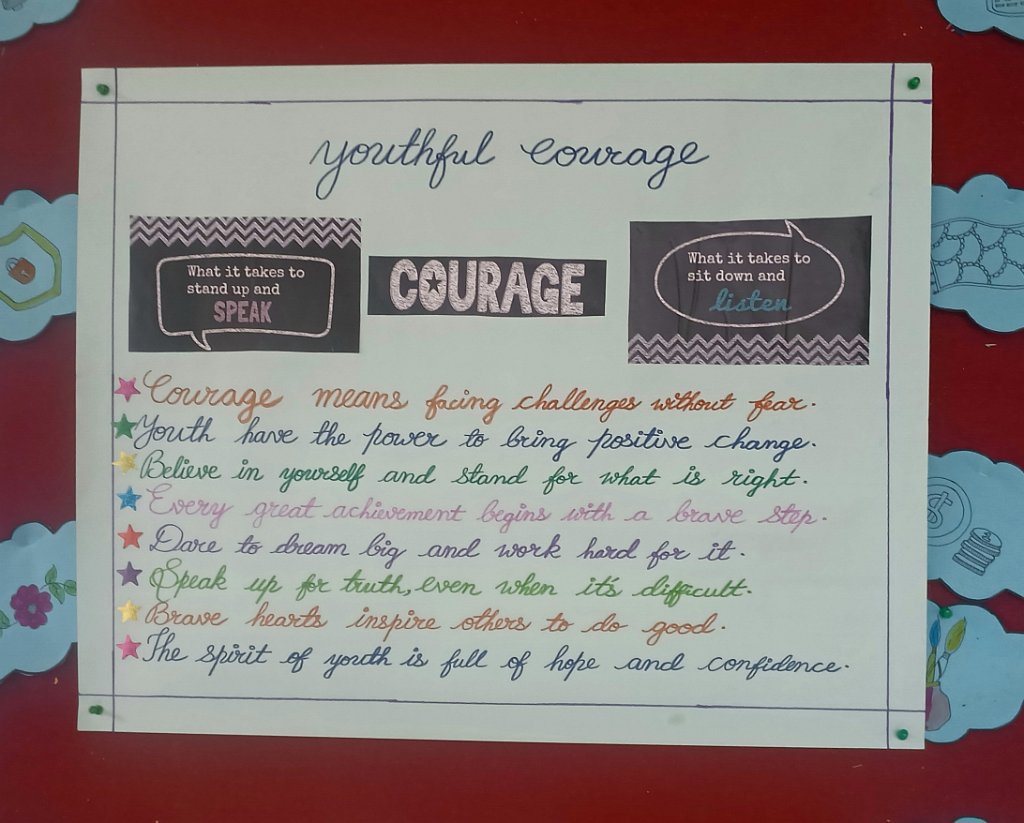 youthful courage
What it takes to
stand up and
SPEAK
COURAGE
What it takes to
sit down and
listen
Courage means facing challenges without fear.
Youth have the power to bring positive change.
Believe in yourself and stand for what is right.
Every great achievement begins with a brave step.
Dare to dream big and work hard for it.
Speak up for truth, even when it's difficult.
Brave hearts inspire others to do good.
The spirit of youth is full of hope and confidence.